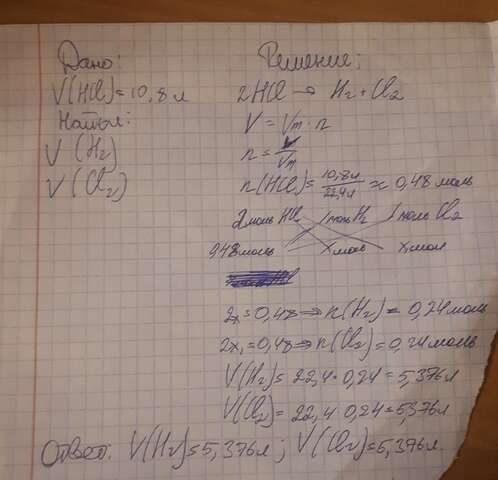 Дано:
V(HCl)=10,8 л
Найти:
V(H₂)
V(Cl₂)
Решение:
2HCl → H₂ + Cl₂
V = Vm · n
n = V/Vm
n(HCl) = 10,8л/22,4л ≈ 0,48 моль
2 моль HCl 1 моль H₂ 1 моль Cl₂
0,48 моль x моль x моль
2x = 0,48 ⇒ n(H₂) = 0,24 моль
2x = 0,48 ⇒ n(Cl₂) = 0,24 моль
V(H₂) = 22,4 · 0,24 = 5,376 л
V(Cl₂) = 22,4 · 0,24 = 5,376 л
Ответ: V(H₂) = 5,376 л; V(Cl₂) = 5,376 л.